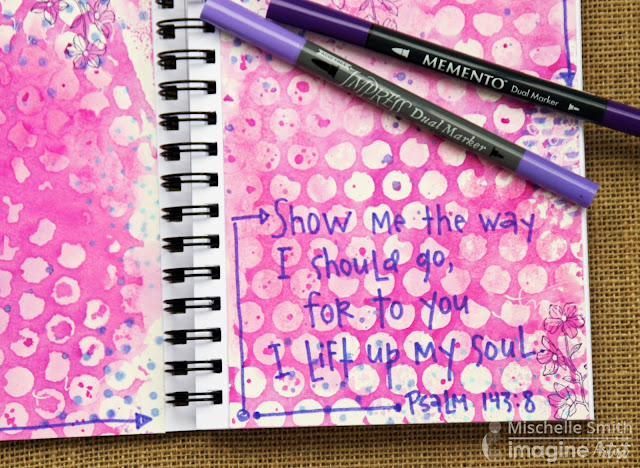 MEMENTO™ Dual Marker
IMPRESS Dual Marker
Show me the way
I should go,
for to you
I Lift up my souL
PSaLM 143:8
Mischelle Smith
imagine Artist